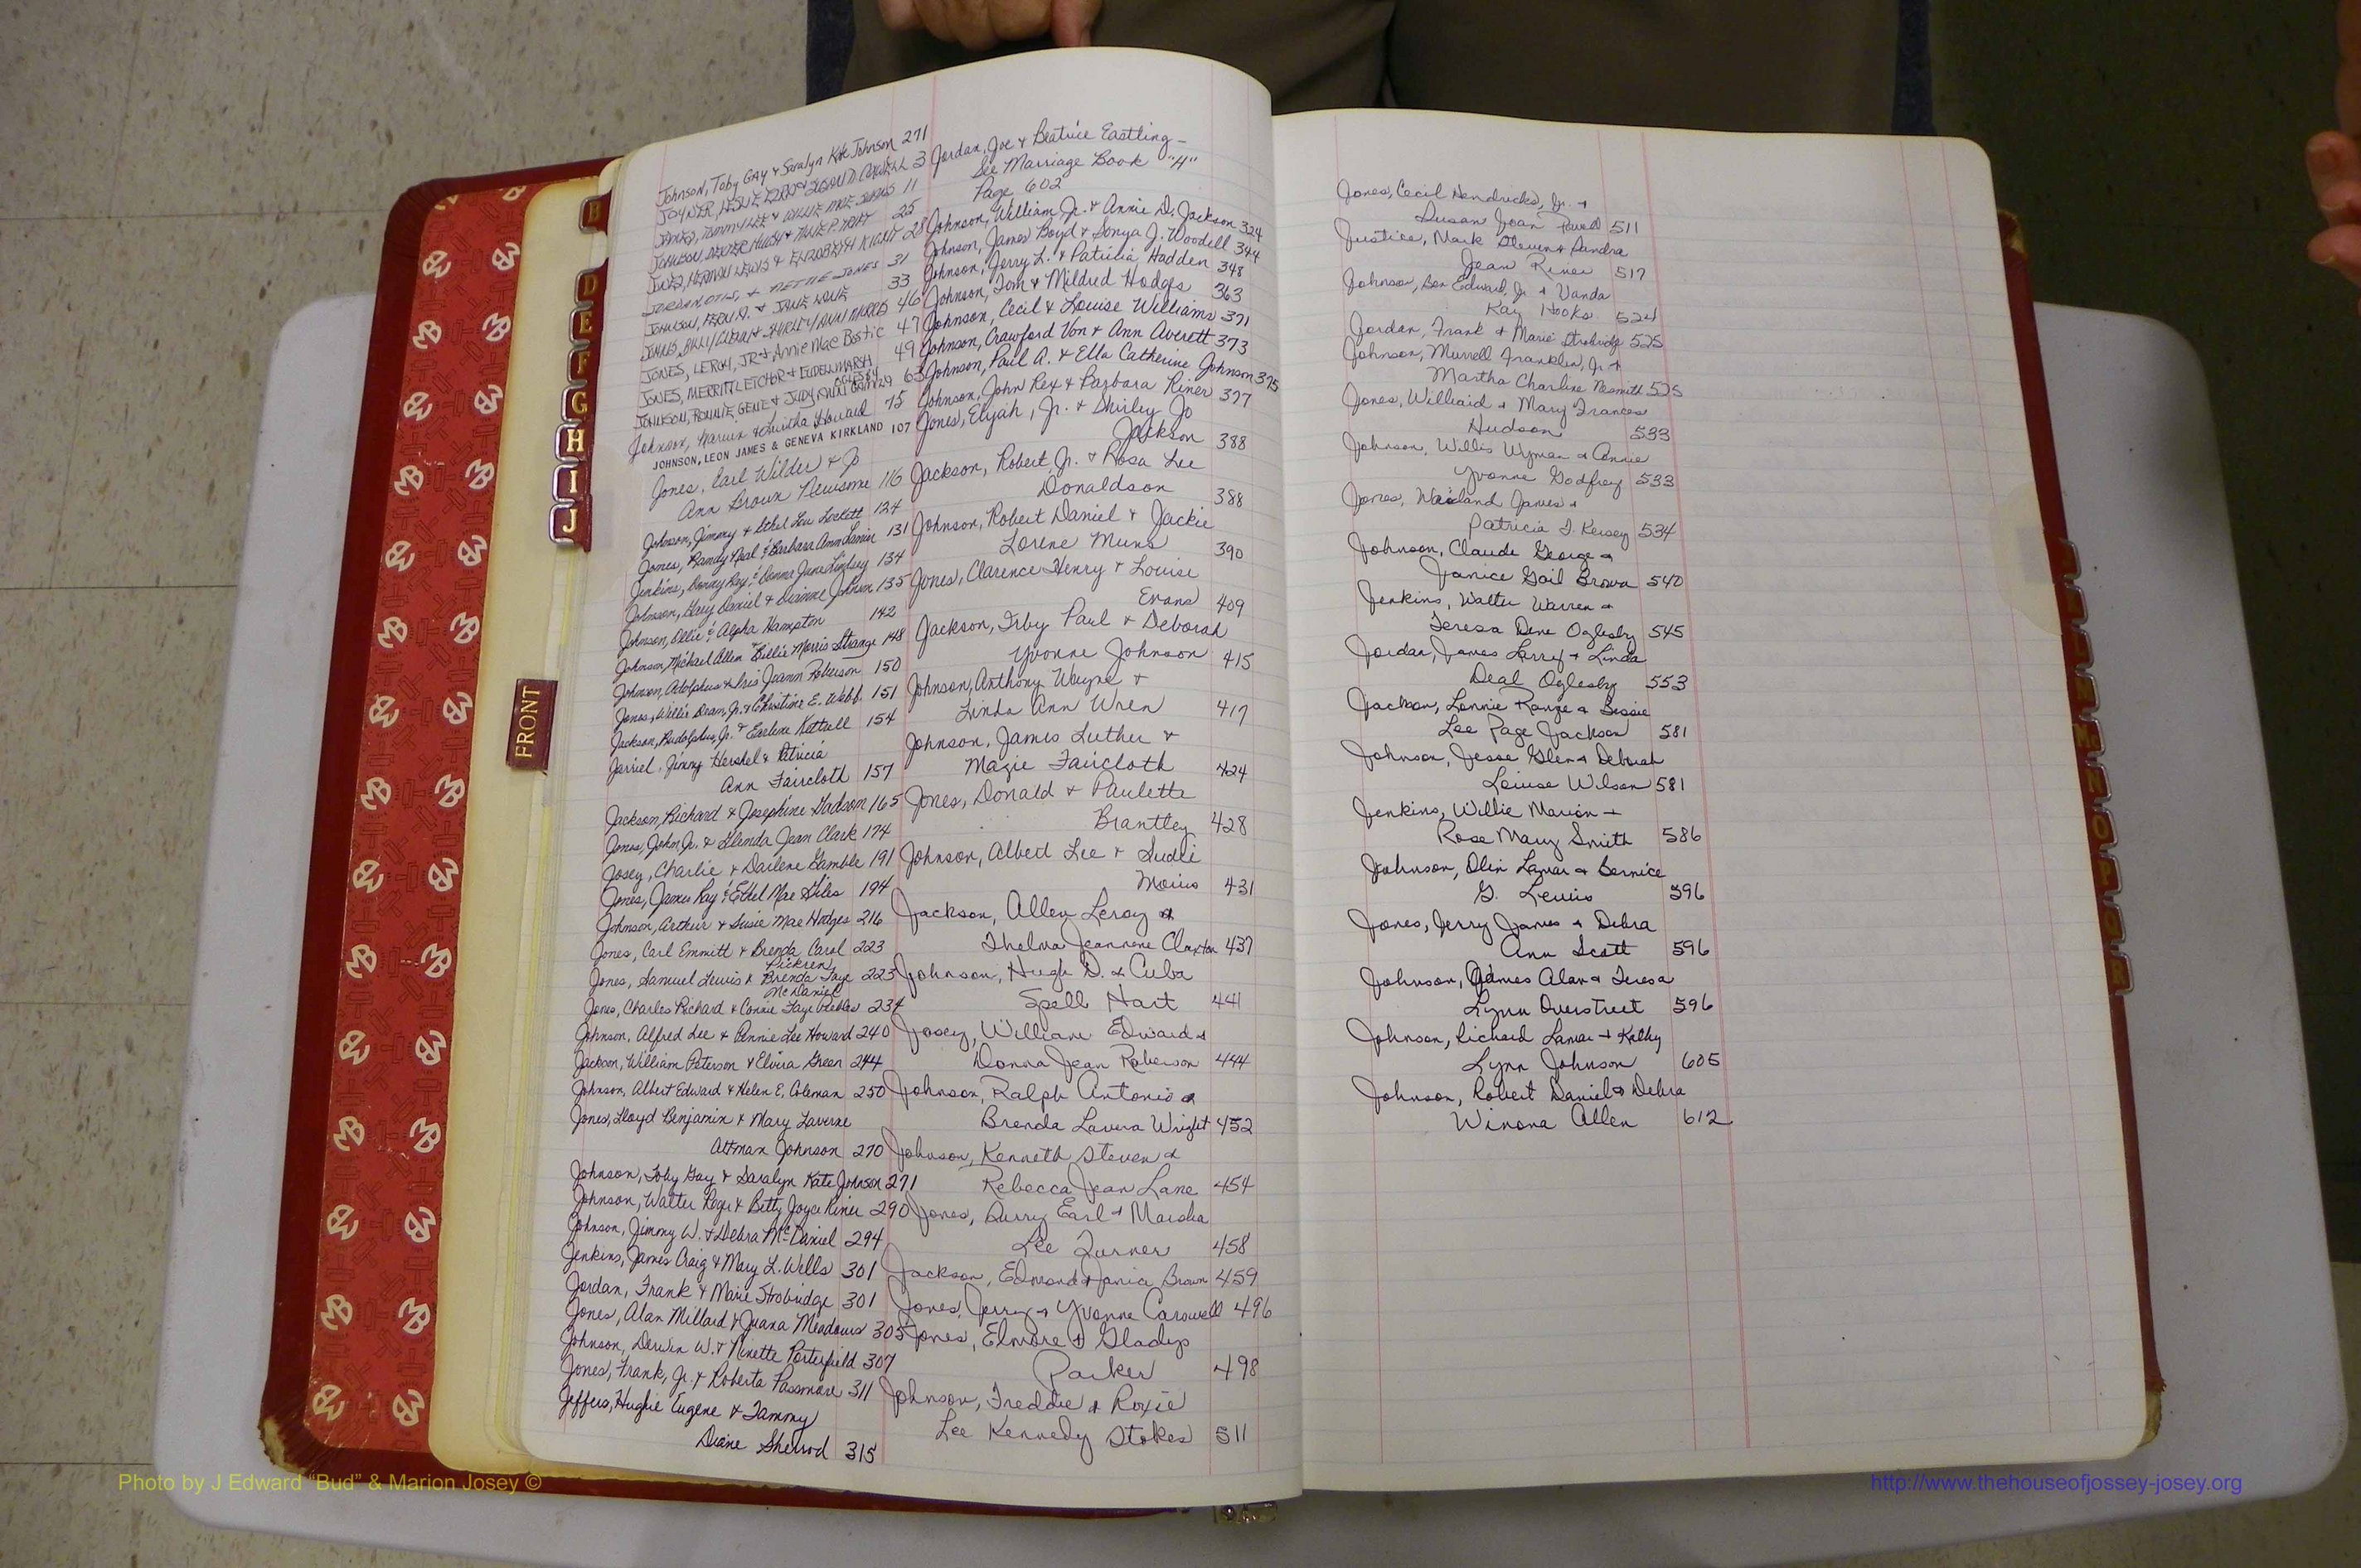 Johnson, Toby Gay & Saralyn Kate Johnson 271
JOYNER, LESLIE 3
JONES, TOMMY LEE & WILLIE MAE 11
JOHNSON, DEXTER HUGH & 25
JONES, HERMON LEWIS & ELIZABETH KIGHT 28
JORDAN, OTIS, & NETTIE JONES 31
JOHNSON, & JANIE 33
JONES, BILLY & SHIRLEY ANN MORRIS 46
JONES, LEROY, JR & Annie Mae Bostic 47
JONES, MERRITT LETCHER & EUDELL MARSH 49
JOHNSON, RONNIE GENE & JUDY 63
Johnson, Marvin & Howard 75
JOHNSON, LEON JAMES & GENEVA KIRKLAND 107
Jones, Earl Wilder & Jo
Ann Brown Newsome 116
Johnson, Jimmy & Ethel Lou Lockett 124
Jones, Randy Neal & Barbara Ann Lanier 131
Jenkins, Donny Ray & Donna Jane Lindsey 134
Johnson, Gary Daniel & Dianne Johnson 135
Johnson, Ollie & Alpha Hampton 142
Johnson, Michael Allen & Billie Morris Strange 148
Johnson, Adolphus & Iris Joann Roberson 150
Jones, Willie Dean, Jr. & Christine E. Webb 151
Jackson, Rudolphus, Jr. & Earlene Kittrell 154
Jarriel, Jimmy Hershel & Patricia
Ann Faircloth 157
Jackson, Richard & Josephine Gadson 165
Jones, John, Jr. & Glenda Jean Clark 174
Josey, Charlie & Darlene Gamble 191
Jones, James Ray & Ethel Mae Stiles 194
Johnson, Arthur & Susie Mae Hodges 216
Jones, Carl Emmitt & Brenda Carol 223
Pickren
Jones, Samuel Lewis & Brenda Faye 223
McDaniel
Jones, Charles Richard & Connie Faye Peebles 234
Johnson, Alfred Lee & Pennie Lee Howard 240
Jackson, William Peterson & Elvira Green 244
Johnson, Albert Edward & Helen E. Coleman 250
Jones, Lloyd Benjamin & Mary Laverne
Altman Johnson 270
Johnson, Toby Gay & Saralyn Kate Johnson 271
Johnson, Walter Roger & Betty Joyce Riner 290
Johnson, Jimmy W. & Debra McDaniel 294
Jenkins, James Craig & Mary L. Wells 301
Jordan, Frank & Marie Strobridge 301
Jones, Alan Millard & Juana Meadows 305
Johnson, Derwin W. & Ninette Porterfield 307
Jones, Frank, Jr. & Roberta Passmore 311
Jeffers, Hughie Eugene & Tammy
Diane Sherrod 315
Jordan, Joe & Beatrice Eastling -
See Marriage Book "H"
Page 602
Johnson, William Jr. & Annie D. Jackson 324
Johnson, James Boyd & Sonya J. Woodell 344
Johnson, Jerry L. & Patricia Hadden 348
Johnson, Tom & Mildred Hodges 363
Johnson, Cecil & Louise Williams 371
Johnson, Crawford Von & Ann Averett 373
Johnson, Paul A. & Ella Catherine Johnson 375
Johnson, John Rex & Barbara Riner 377
Jones, Elijah, Jr. & Shirley Jo
Jackson 388
Jackson, Robert, Jr. & Rosa Lee
Donaldson 388
Johnson, Robert Daniel & Jackie
Lorene Muns 390
Jones, Clarence Henry & Louise
Evans 409
Jackson, Irby Paul & Deborah
Yvonne Johnson 415
Johnson, Anthony Wayne &
Linda Ann Wren 417
Johnson, James Luther &
Mazie Faircloth 424
Jones, Donald & Paulette
Brantley 428
Johnson, Albert Lee & Sudie
Moris 431
Jackson, Allen Leroy &
Thelma Jeannene Claxton 437
Johnson, Hugh D. & Cuba
Spell Hart 441
Josey, William Edward &
Donna Jean Roberson 444
Johnson, Ralph Antonio &
Brenda Lavera Wright 452
Johnson, Kenneth Steven &
Rebecca Jean Lane 454
Jones, Durry Earl & Marsha
Lee Turner 458
Jackson, Edmond & Janice Brown 459
Jones, Jerry & Yvonne Carswell 496
Jones, Elmore & Gladys
Parker 498
Johnson, Freddie & Roxie
Lee Kennedy Stokes 511
Jones, Cecil Hendricks, Jr. &
Susan Joan Powell 511
Justice, Mark Steven & Pandra
Jean Riner 517
Johnson, Ben Edward, Jr & Vanda
Kay Hooks 524
Jordan, Frank & Marie Strobridge 525
Johnson, Murrell Franklin, Jr. &
Martha Charline Nesmith 525
Jones, Williaid & Mary Frances
Hudson 533
Johnson, Willis Wyman & Annie
Yvonne Godfrey 533
Jones, Waidland James &
Patricia J. Kersey 534
Johnson, Claude George &
Janice Gail Brown 540
Jenkins, Walter Warren &
Teresa Dene Oglesby 545
Jordan, James Larry & Linda
Deal Oglesby 553
Jackson, Lonnie Range & Bessie
Lee Page Jackson 581
Johnson, Jesse Glen & Deborah
Louise Wilson 581
Jenkins, Willie Marion &
Rose Mary Smith 586
Johnson, Olin Lamar & Bernice
G. Lewis 596
Jones, Jerry James & Debra
Ann Scott 596
Johnson, James Alan & Teresa
Lynn Overstreet 596
Johnson, Richard Lamar & Kathy
Lynn Johnson 605
Johnson, Robert Daniel & Debra
Winona Allen 612
B
D
E
F
G
H
I
J
FRONT
M
N
O
P
Q
R
Photo by J Edward "Bud" & Marion Josey ©
http://www.thehouseofjossey-josey.org